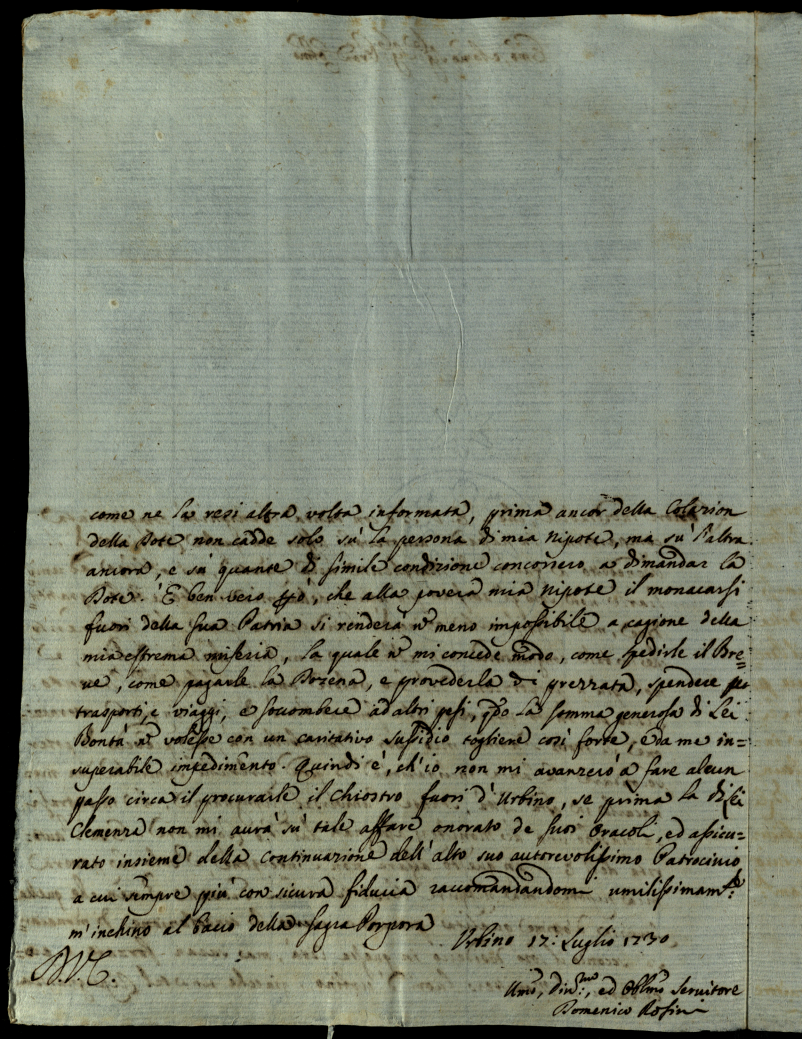 come ne la resi altra volta informata, prima ancor della Colazion
della Dote non cadde solo sù la persona di mia Nipote, ma sù l'altra
ancora, e sù quante di simile condizione concorrero a dimandar la
Dote. È ben vero però, che alla povera mia Nipote il monacarsi
fuori della sua Patria si renderà nō meno impossibile a cagione della
mia estrema miseria, la quale nō mi concede modo, come spedirle il Bre=
ve, come pagarle la Dozena, e provederla di prezzata, spendere per
trasporti, e viaggi, e socombere ad altri pesi, qdo la somma generosa di Lei
Bontà nō volesse con un caritativo sussidio togliere così forte, e da me in=
superabile impedimento. Quindi è, ch'io non mi avanzerò a fare alcun
passo circa il procurarle il Chiostro fuori d'Urbino, se prima la di Lei
Clemenza non mi avrà sù tale affare onorato de suoi Oracoli, ed assicu=
rato insieme della Continuazione dell'alto suo autorevolissimo Patrocinio
a cui sempre più con sicura fiducia raccomandandomi umilissimamte:
m'inchino al Bacio della Sagra Porpora
Urbino 17: Luglio 1730
Umo, Divmo:, ed Obblmo Servitore
Domenico Rosini